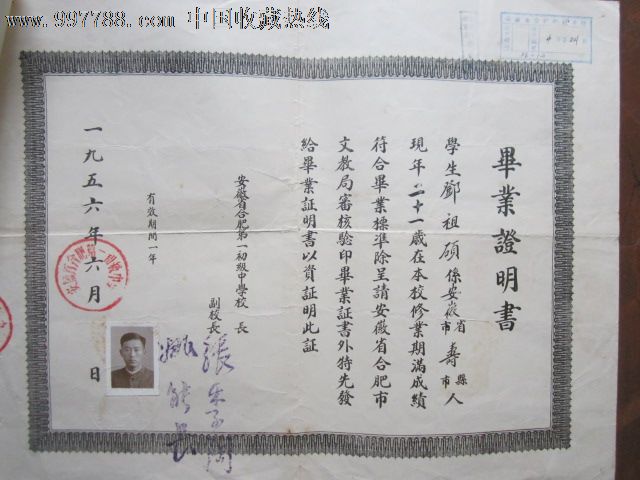 www.997788.com 中国收藏热线
畢業證明書
學生鄧祖碩係安徽省壽縣人
市市
現年二十一歲在本校修業期滿成績
符合畢業標準除呈請安徽省合肥市
文教局審核驗印畢業証書外特先發
給畢業証明書以資証明此証
安徽省合肥第一初級中學校長
副校長
張
有效期間一年
一九五六年六月 日